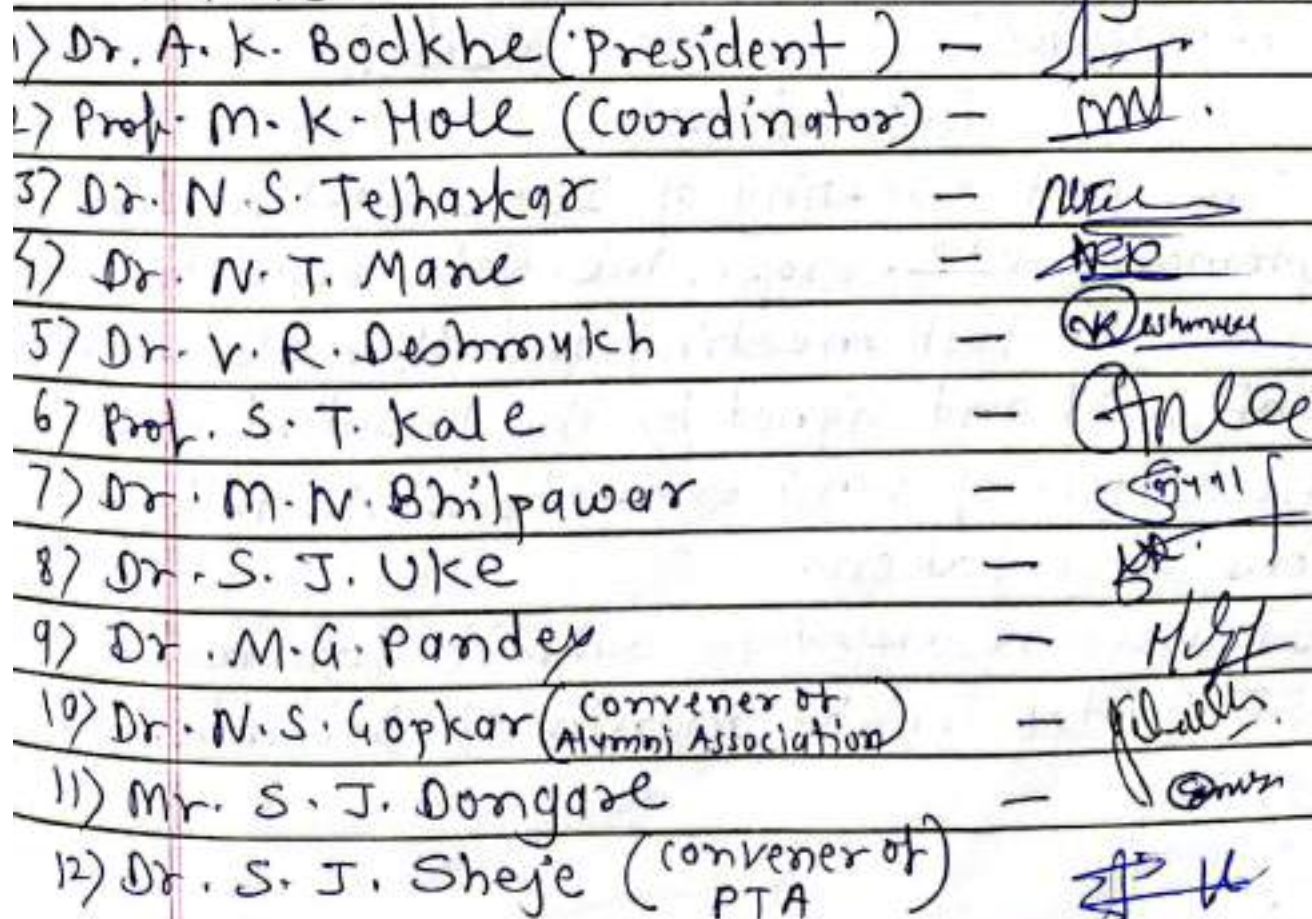 1) Dr. A. K. Bodkhe (President) -
2) Prof. M. K. Hole (Coordinator) -
3) Dr. N. S. Telharkar -
4) Dr. N. T. Mane -
5) Dr. V. R. Deshmukh - Deshmukh
6) Prof. S. T. Kale -
7) Dr. M. N. Bhilpawar -
8) Dr. S. J. Uke -
9) Dr. M. G. Pandey -
10) Dr. N. S. Gopkar (Convener of Alumni Association) -
11) Mr. S. J. Dongare -
12) Dr. S. J. Sheje (convener of PTA)